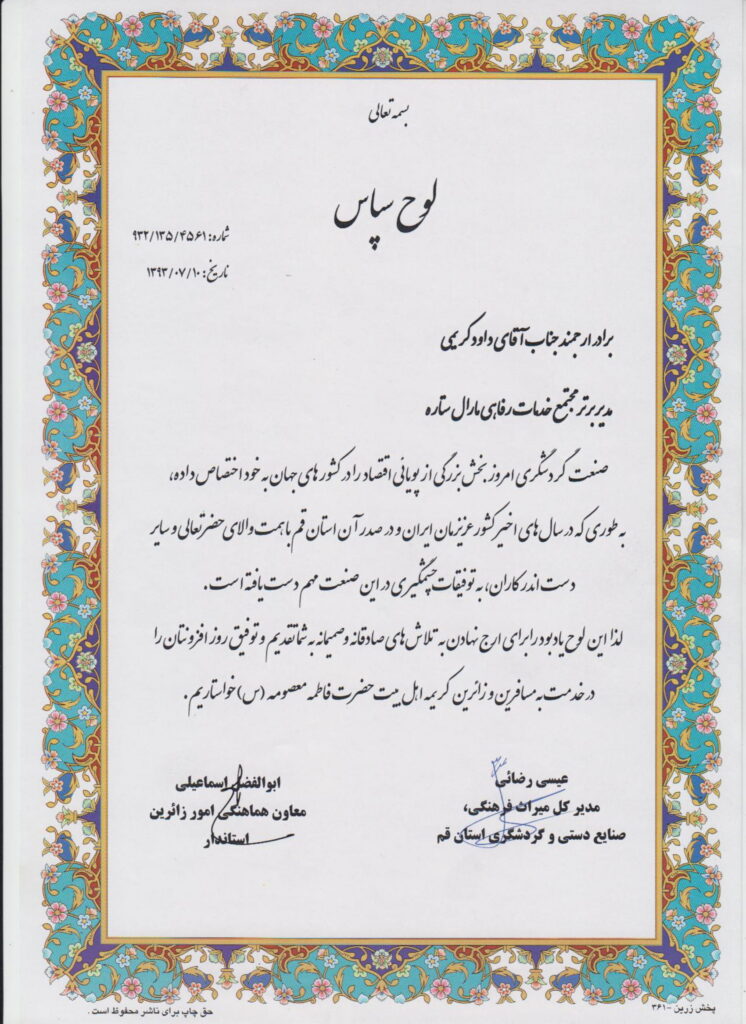 بسمه تعالی
لوح سپاس
شماره: ۹۳۲/۱۳۵/۴۵۶۱
تاریخ: ۱۳۹۳/۰۷/۱۰
برادر ارجمند جناب آقای داود کریمی
مدیر برتر مجتمع خدمات رفاهی مارال ستاره
صنعت گردشگری امروز بخش بزرگی از پویائی اقتصاد را در کشورهای جهان به خود اختصاص داده،
به طوری که در سال های اخیر کشور عزیزمان ایران و در صدر آن استان قم با همت والای حضرتعالی و سایر
دست اندرکاران، به توفیقات چشمگیری در این صنعت مهم دست یافته است.
لذا این لوح یادبود را برای ارج نهادن به تلاش های صادقانه و صمیمانه به شما تقدیم و توفیق روز افزونتان را
در خدمت به مسافرین و زائرین کریمه اهل بیت حضرت فاطمه معصومه (س) خواستاریم.
عیسی رضائی
مدیر کل میراث فرهنگی،
صنایع دستی و گردشگری استان قم
ابوالفضل اسماعیلی
معاون هماهنگی امور زائرین
استاندار
پخش زرین - ۳۶۱
حق چاپ برای ناشر محفوظ است.